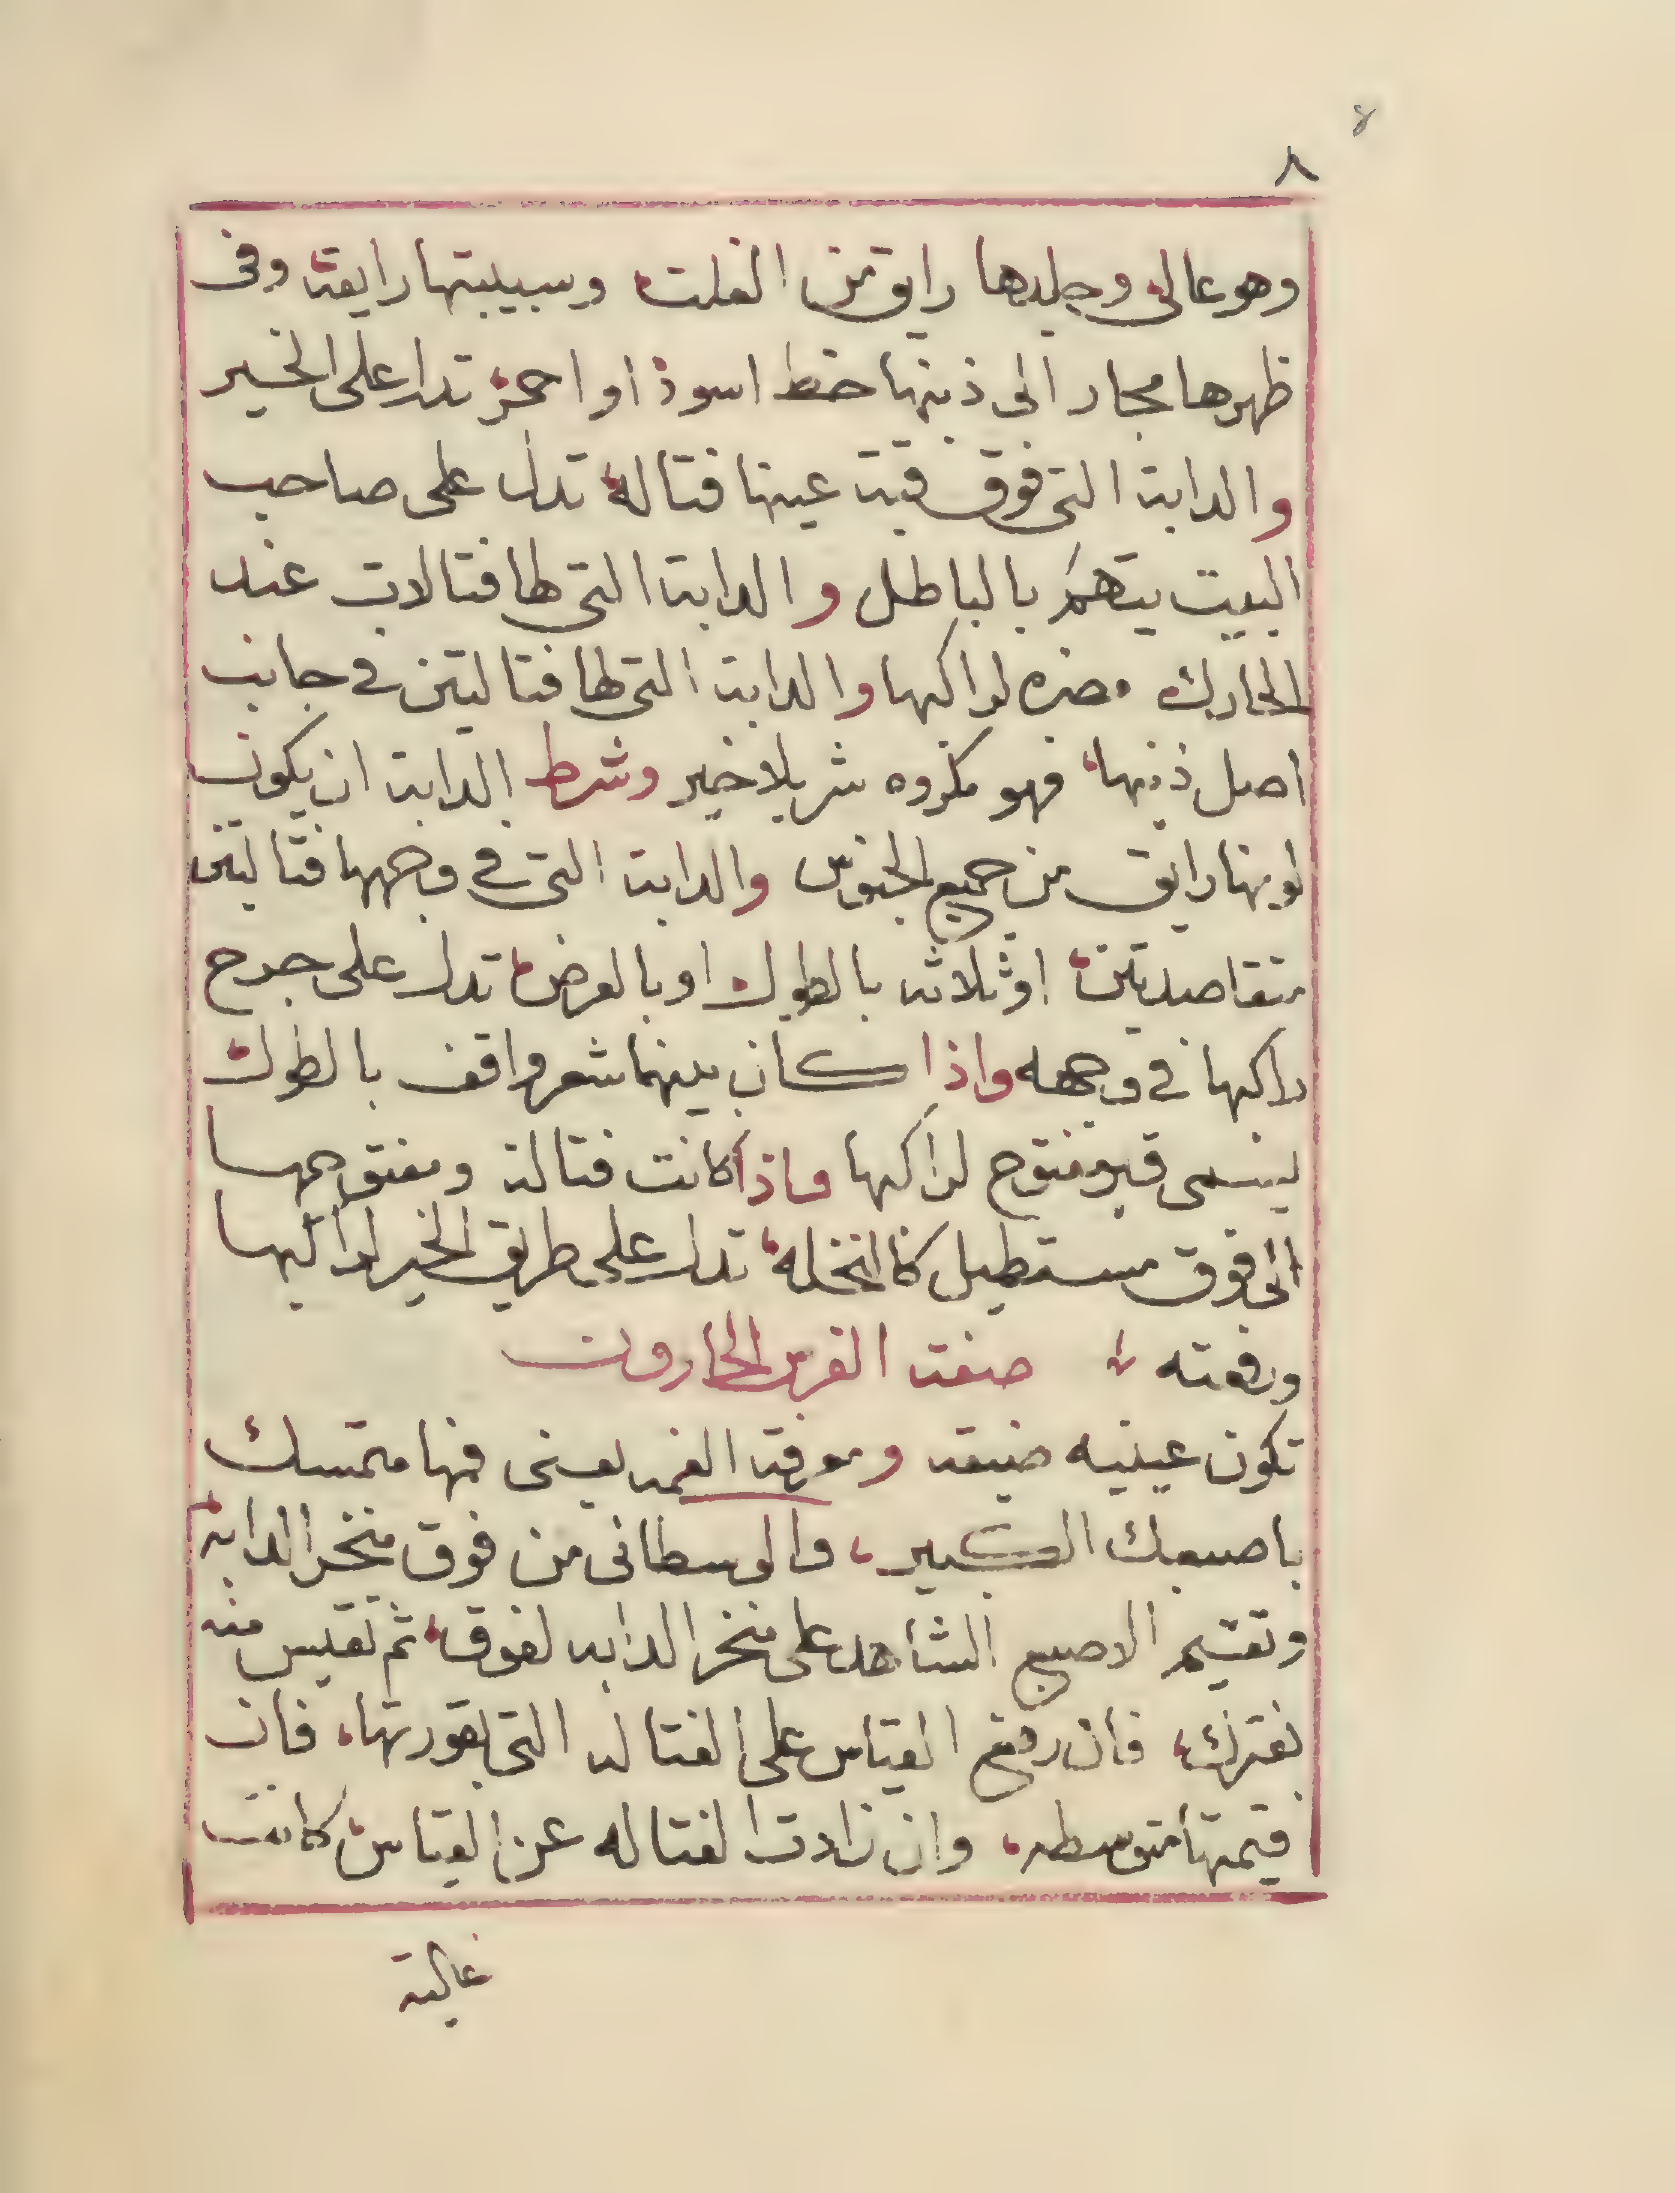 8
٨
وهو عالى وجلدها رايق من الفلت وسبيبتها رايقة وفى
ظهرها مجار الى ذنبها خط اسود او احمر تدل على الخير
والدابة التى فوق قبة عينها فتاله تدل على صاحب
البيت يتهم بالباطل والدابة التى لها فتالات عند
الحارك مضره لراكبها والدابة التى لها فتالتين فى جانب
اصل ذنبها فهو مكروه شر بلا خير وشرط الدابة ان يكون
لونها رايق من جميع الجنوس والدابة التى فى وجهها فتالتين
متقاصدتين او ثلاثه بالطول او بالعرض تدل على جرح
راكبها فى وجهه واذا كان بينهما شعر واقف بالطول
يسمى قبر مفتوح لراكبها واذا كانت فتالة ومفتوحها
الى فوق مستطيل كالنخله تدل على طريق الخير لراكبها
ورفعته صفة الفرس الحارون
تكون عينيه ضيقه ومعرفة الغمه يعنى فمها متمسك
باصبعك الكبير والوسطانى من فوق منخر الدابة
وتقيم الاصبع الشاهد على منخر الدابه لفوق ثم تقيس منه
بفترك فان رفع القياس على الفتاله التى بقورتها فان
قيمتها متوسطه وان زادت الفتاله عن القياس كانت
غالية